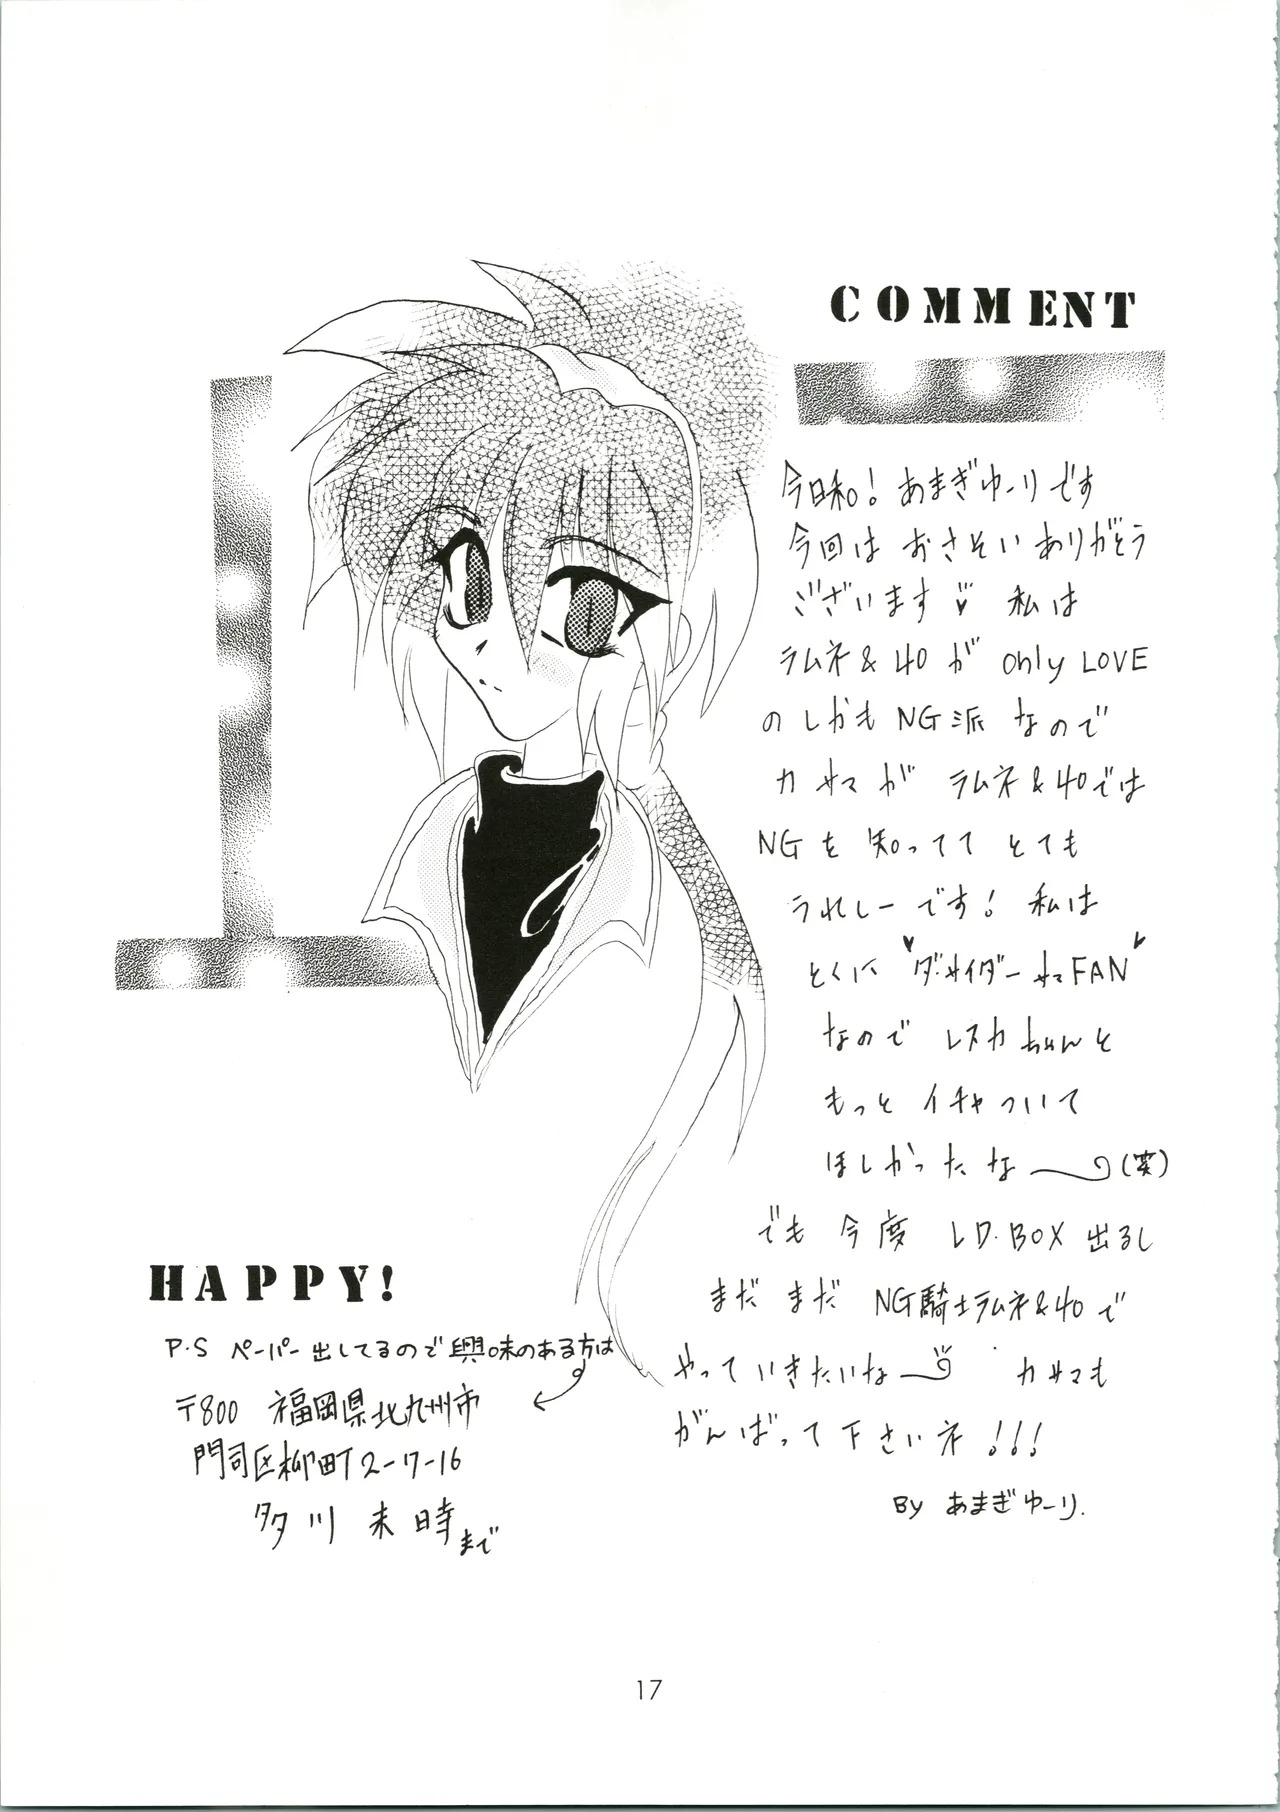 COMMENT
今日和。! あまぎゆーりです
今回は おさそい ありがとう
ございます 私は
ラムネ&40が only LOVE
の しかも NG派 なので
カサマが ラムネ&40では
NGを 知ってて とても
うれしーです! 私は
とくに ダ・サイダーサマFAN
なので レスカちゃんと
もっと イチャついて
ほしかったな〜(笑)
でも 今度 LD.BOX 出るし
まだまだ NG騎士ラムネ&40で
やっていきたいな〜 カサマも
がんばって下さいネ!!!
By あまぎゆーり.
HAPPY!
P.S ペーパー出してるので興味のある方は
〒800 福岡県北九州市
門司区柳町2-7-16
多川 未時まで
17